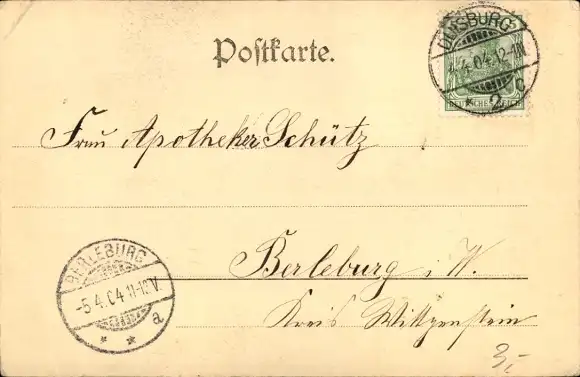 Postkarte.
DUISBURG
4.4.04.12-1N
* 2 c
DEUTSCHES REICH
Frau Apotheker Schütz
Berleburg i. W.
Kreis Wittgenstein
BERLEBURG
-5.4.04 11-12V.
* * a
3,-